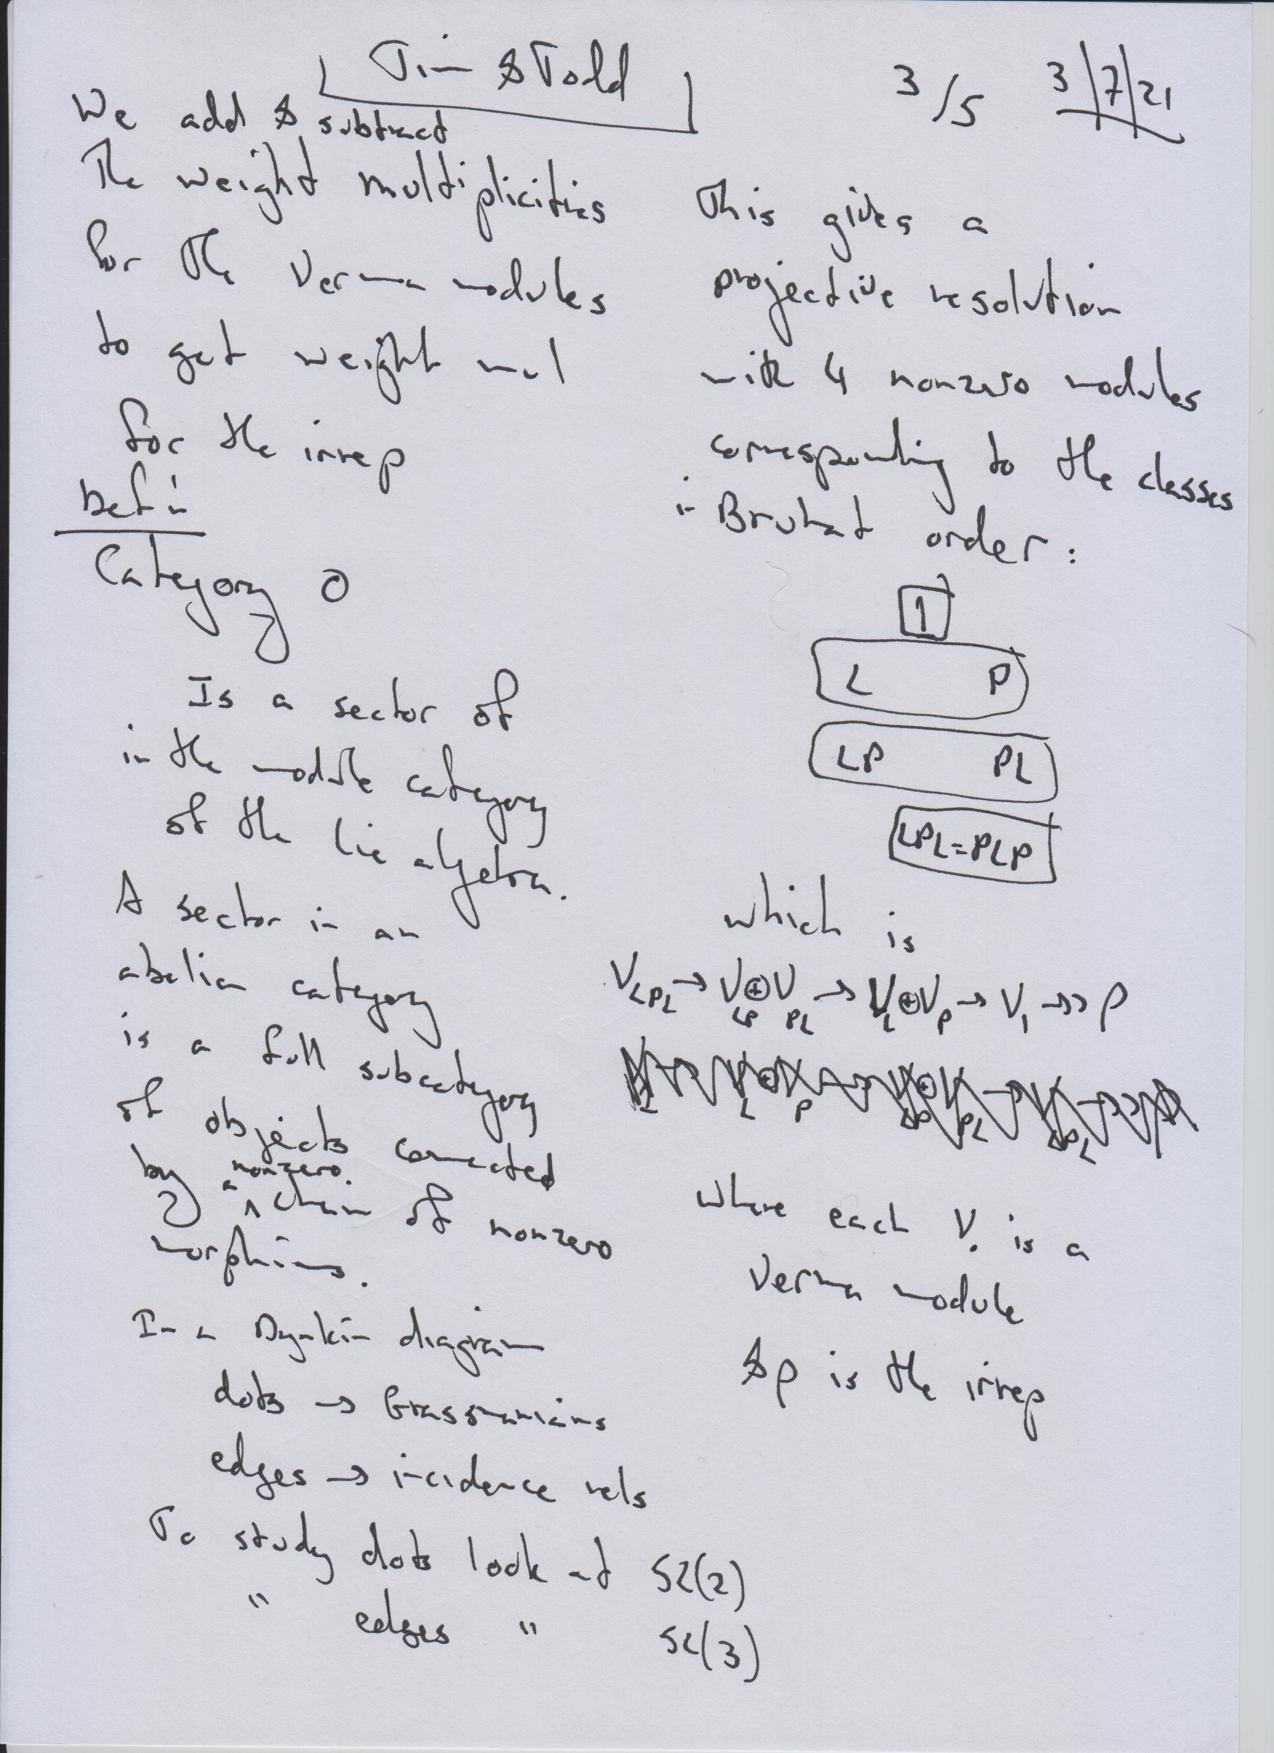 Tim & Todd
3/5 3/7/21
We add & subtract
The weight multiplicities
for the Verma modules
to get weight mul
for the irrep
Def'n
Category O
Is a sector of
in the module category
of the lie algebra.
A sector in an
abelian category
is a full subcategory
of objects connected
by a nonzero chain of nonzero
morphisms.
In a Dynkin diagram
dots → Grassmanians
edges → incidence rels
To study dots look at SL(2)
" edges " SL(3)
This gives a
projective resolution
with 4 nonzero modules
corresponding to the classes
in Bruhat order:
1
L P
LP PL
LPL=PLP
which is
V_LPL → V_LP ⊕ V_PL → V_L ⊕ V_P → V_1 →> ρ
where each V. is a
Verma module
& ρ is the irrep